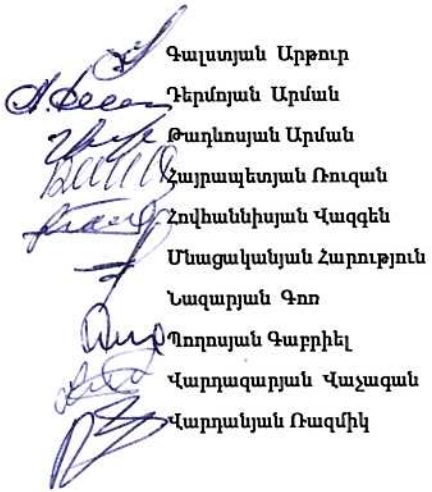 Գալստյան Արթուր
Դերմոյան Արման
Թադևոսյան Արման
Հայրապետյան Ռուզան
Հովհաննիսյան Վազգեն
Մնացականյան Հարություն
Նազարյան Գոռ
Պողոսյան Գաբրիել
Վարդազարյան Վաչագան
Վարդանյան Ռազմիկ